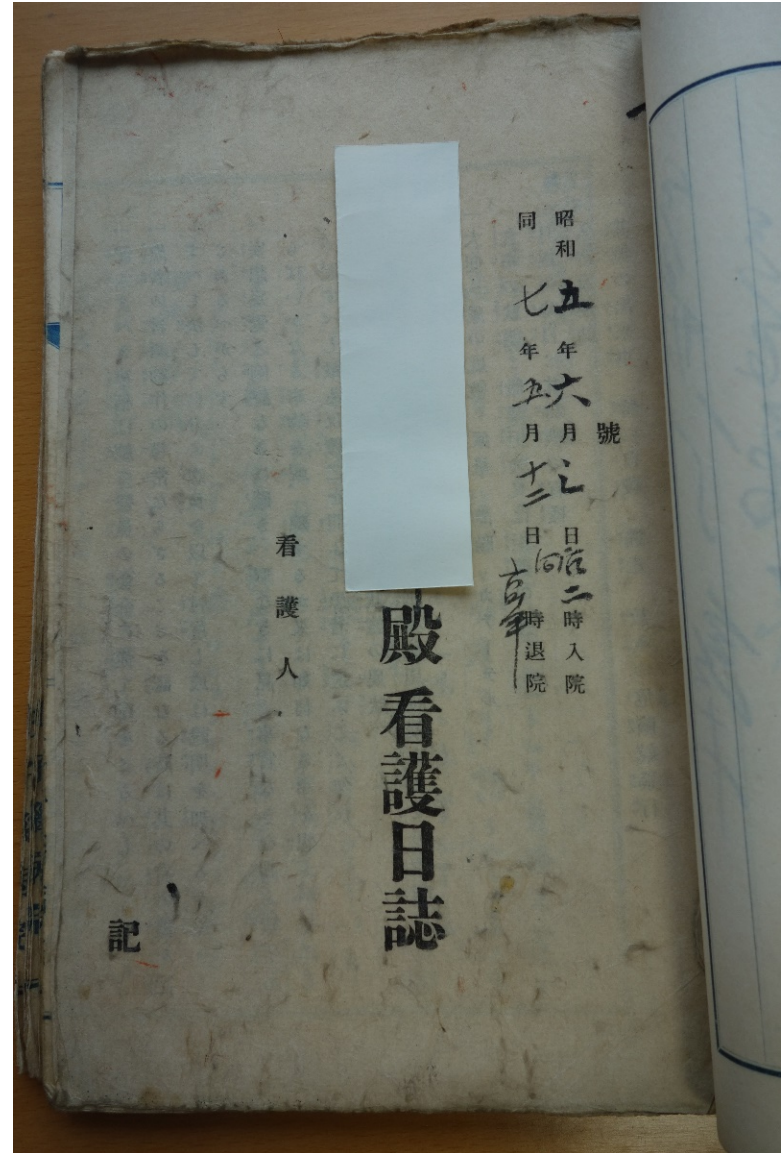 號
昭和五年六月 日后二時入院
同七年五月十二日 時退院
殿 看護日誌
看護人
記